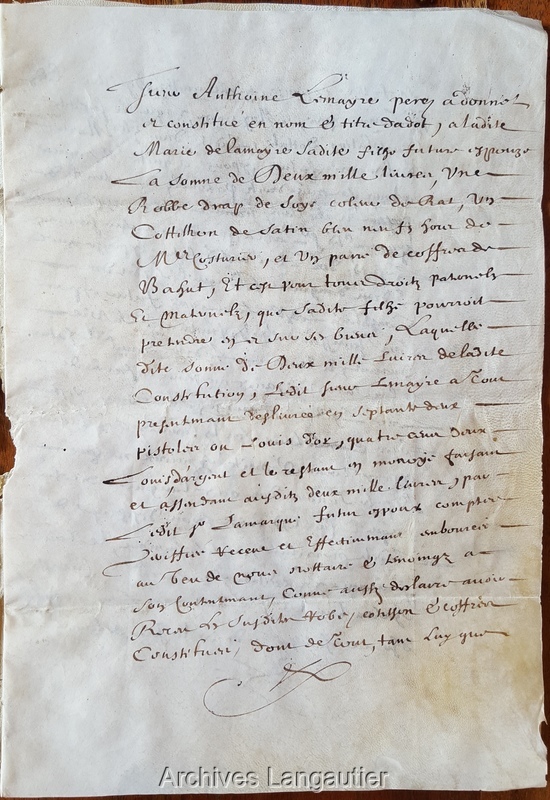 sieur Anthoine Lemayre pere, a donné
et constitué en nom & titre dadot, a ladite
Marie de lamayre sadite filhe future espouze
La somme de Deux mille livres, Une
Robbe drap de soye coleur de Rat, Un
Cottilhon de satin bleu neufs hour de
Mtre Costurier, et Un paire de coffres de
Bahut, Et c'est pour tous droitz paternelz
Et Maternelz, que sadite filhe pourroit
pretendre en et sur ses biens, Laquelle
dite somme de Deux mille Livres de ladite
Constitution, Ledit sieur Lemayre a tout
presentmant deslivrée en septante deux
pistoles ou Louis d'or, quatre cens deux
Louis dargent et le restant en monoye faisant
et assendant ausdits deux mille livres, par
Ledit sr Lamarque futur espoux comptée
veriffiée Receue et Effectivemant emboursée
au veu de nous nottaire & tesmoingz a
son Contentmant, Comme aussy desclaire avoir
Receu La susdite Robe, cotilhon & coffres
Constitués, dont de tout, tant Luy que
Archives Langautier